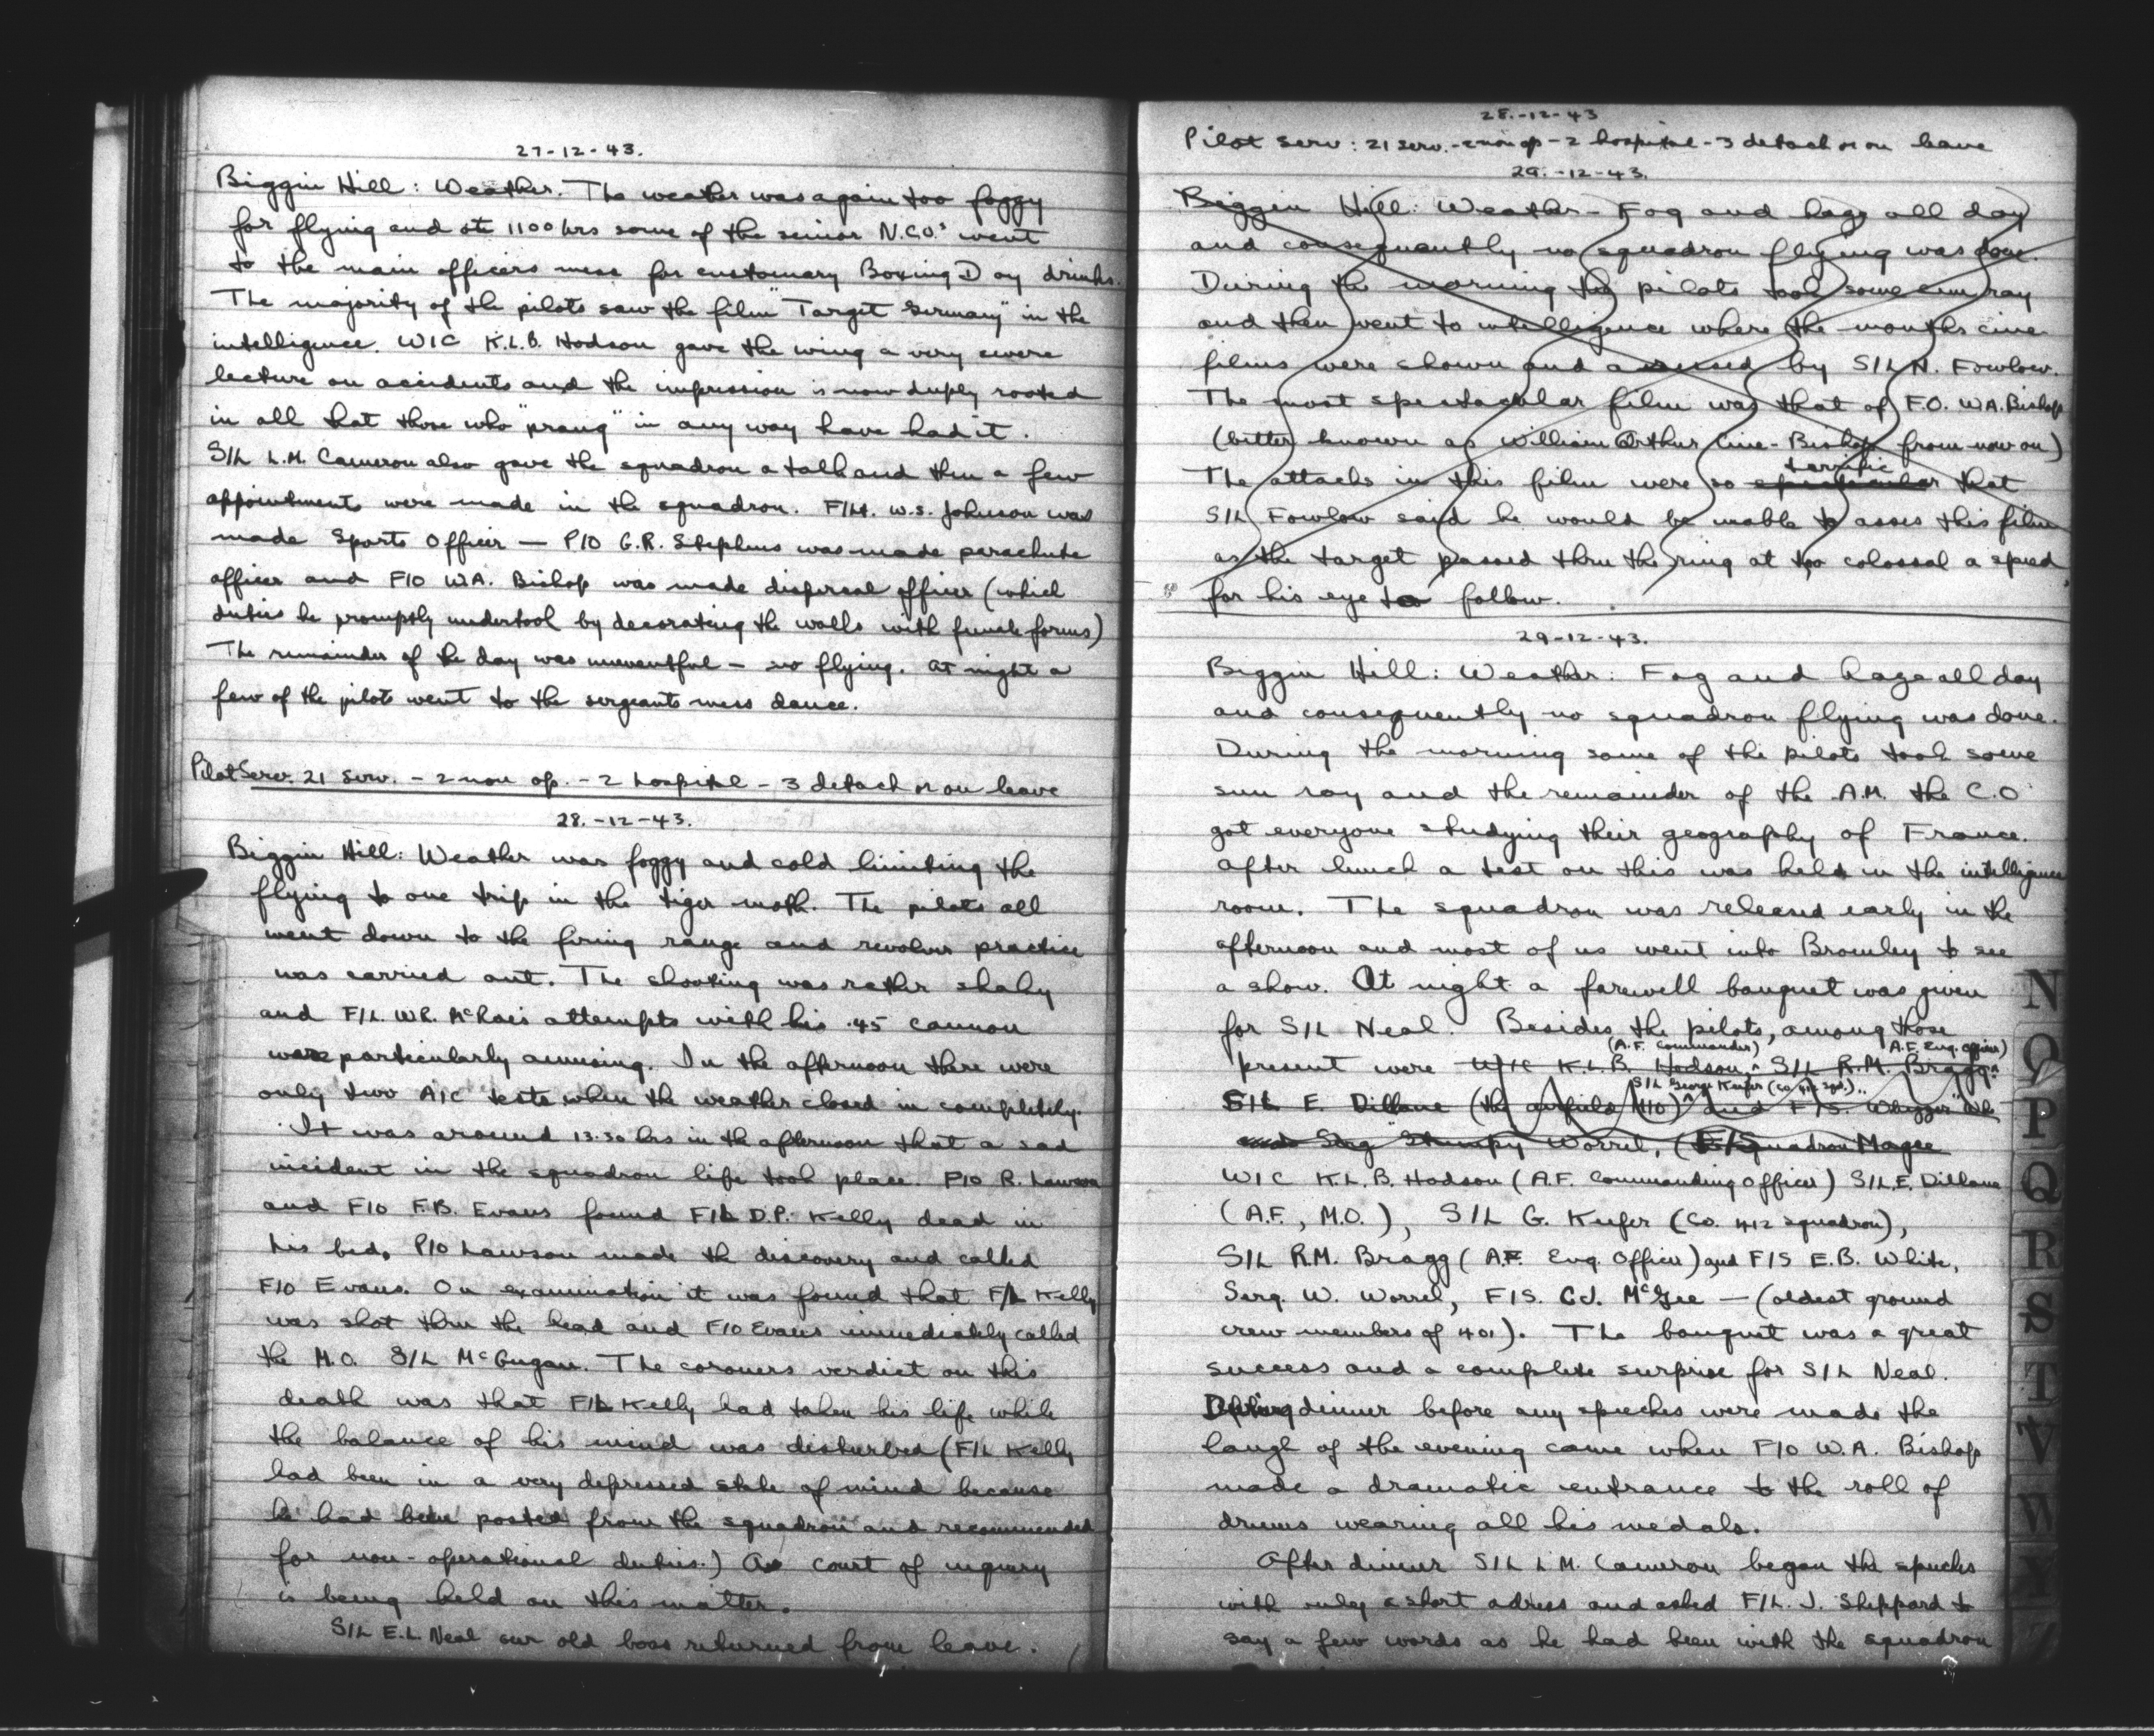 27-12-43.
Biggin Hill: Weather. The weather was again too foggy
for flying and at 1100 hrs some of the senior N.C.O.s went
to the main officers mess for customary Boxing Day drinks.
The majority of the pilots saw the film "Target Germany" in the
intelligence. W/C K.L.B. Hodson gave the wing a very severe
lecture on accidents and the impression is now deeply rooted
in all that those who "prang" in any way have had it.
S/L L.M. Cameron also gave the squadron a talk and then a few
appointments were made in the squadron. F/Lt. W.S. Johnson was
made Sports Officer — P/O G.R. Stephens was made parachute
officer and F/O W.A. Bishop was made dispersal officer (which
duties he promptly undertook by decorating the walls with female forms)
The remainder of the day was uneventful - no flying. At night a
few of the pilots went to the sergeants mess dance.
Pilot Serv. 21 serv. - 2 non op. - 2 hospital - 3 detach or on leave
28.-12-43.
Biggin Hill: Weather was foggy and cold limiting the
flying to one trip in the tiger moth. The pilots all
went down to the firing range and revolver practice
was carried out. The shooting was rather shaky
and F/L. W.R. McRae's attempts with his .45 cannon
were particularly amusing. In the afternoon there were
only two A/C tests when the weather closed in completely.
It was around 13.30 hrs in the afternoon that a sad
incident in the squadron life took place. P/O R. Lawson
and F/O F.B. Evans found F/L D.P. Kelly dead in
his bed. P/O Lawson made the discovery and called
F/O Evans. On examination it was found that F/L Kelly
was shot thru the head and F/O Evans immediately called
the M.O. S/L McGugan. The coroners verdict on this
death was that F/L Kelly had taken his life while
the balance of his mind was disturbed (F/L Kelly
had been in a very depressed state of mind because
he had been posted from the squadron and recommended
for non-operational duties.) A court of inquiry
is being held on this matter.
S/L E.L. Neal our old boss returned from leave.
28.-12-43
Pilot Serv: 21 serv. - 2 non op - 2 hospital - 3 detach or on leave
29.-12-43.
Biggin Hill: Weather - Fog and haze all day
and consequently no squadron flying was done.
During the morning the pilots took some sun ray
and then went to intelligence where the months cine
films were shown and assessed by S/L N. Fowlow.
The most spectacular film was that of F.O. W.A. Bishop
(better known as William Arthur Cine-Bishop from now on)
terrific
The attacks in this film were so spectacular that
S/L Fowlow said he would be unable to asses this film
as the target passed thru the ring at too colossal a speed
for his eye to follow.
29-12-43.
Biggin Hill: Weather: Fog and haze all day
and consequently no squadron flying was done.
During the morning some of the pilots took some
sun ray and the remainder of the A.M. the C.O
got everyone studying their geography of France.
After lunch a test on this was held in the intelligence
room. The squadron was released early in the
afternoon and most of us went into Bromley to see
a show. At night a farewell banquet was given
for S/L Neal. Besides the pilots, among those
(A.F. Commander) A.F. Eng. Officer)
present were W/C K.L.B. Hodson, S/L R.M. Bragg
S/L George Keefer (CO 412 Sqd.)
S/L E. Dillane (the airfield M/O) and F/S.
Serg "Stumpy" Worrel, Magee
W/C K.L.B. Hodson (A.F. Commanding Officer) S/L E. Dillane
(A.F., M.O.), S/L G. Keefer (CO. 412 squadron),
S/L R.M. Bragg (A.F. Eng. Officer) and F/S E.B. White,
Serg. W. Worrel, F/S. C.J. McGee — (oldest ground
crew members of 401). The banquet was a great
success and a complete surprise for S/L Neal.
During dinner before any speeches were made the
laugh of the evening came when F/O W.A. Bishop
made a dramatic entrance to the roll of
drums wearing all his medals.
After dinner S/L L.M. Cameron began the speeches
with only a short adress and asked F/L. J. Sheppard to
say a few words as he had been with the squadron
N
O
P
Q
R
S
T
V
W
Y
Z